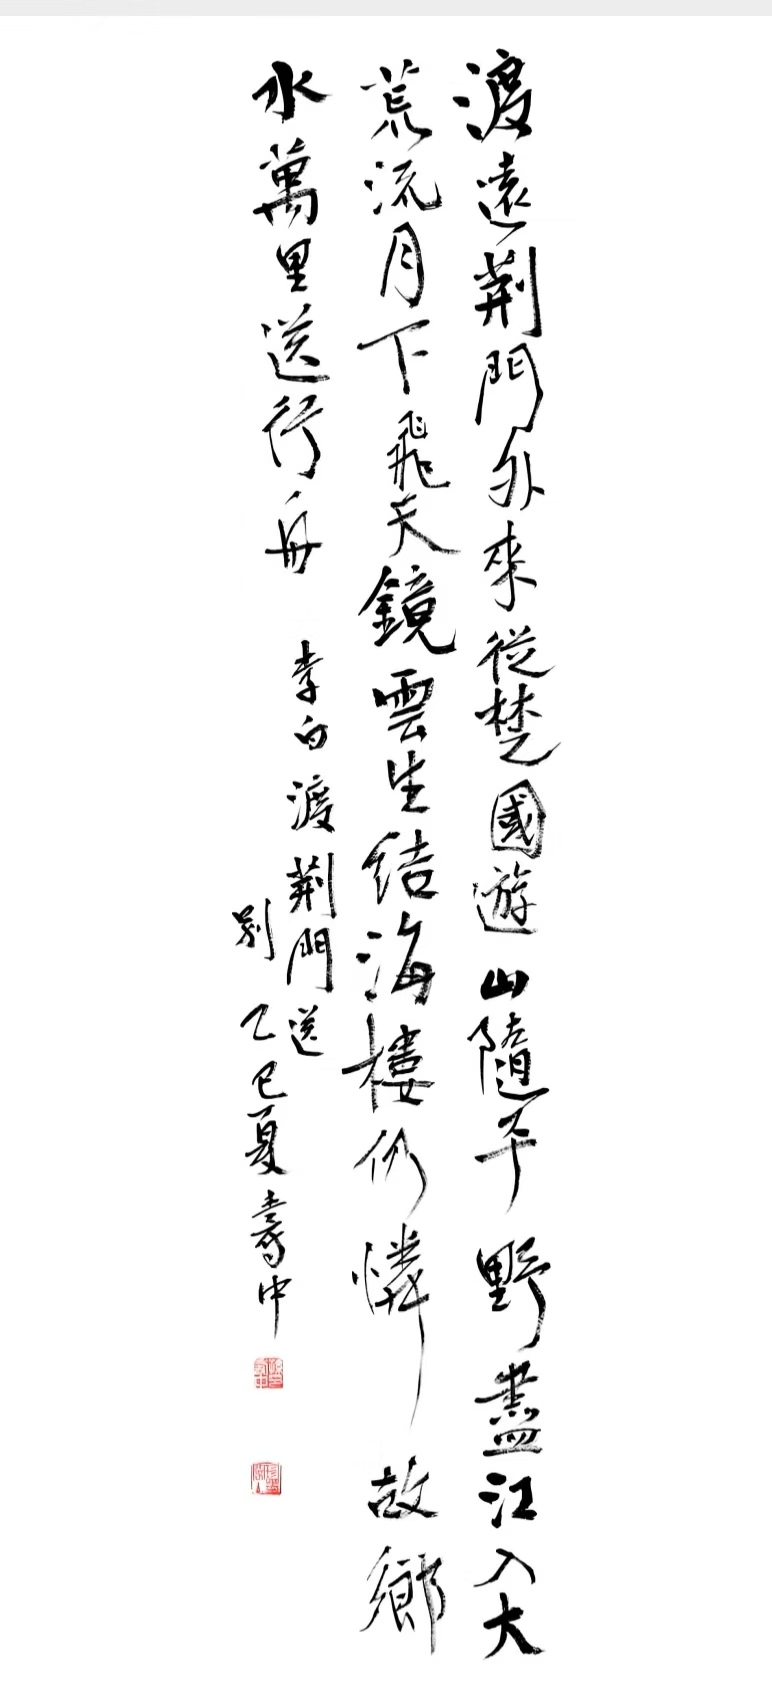 渡遠荊門外來從楚國遊山隨平野盡江入大
荒流月下飛天鏡雲生結海樓仍憐故鄉
水萬里送行舟
李白渡荊門送
別乙巳夏壽中